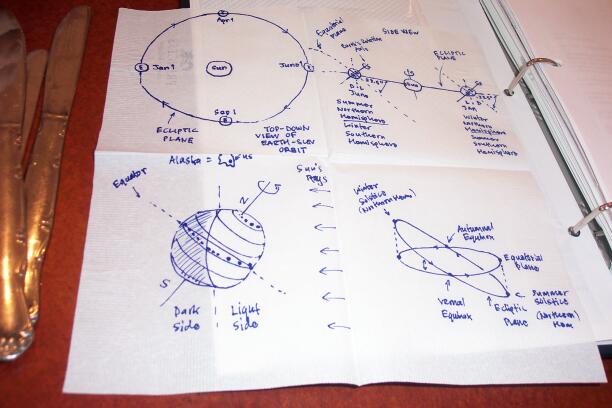 Apr 1
Jan 1
Sun
June 1
Sep 1
ECLIPTIC
PLANE
TOP-DOWN
VIEW OF
EARTH-SUN
ORBIT
Equatorial
Plane
SIDE VIEW
Earth's Rotation
Axis
ECLIPTIC
PLANE
June
Summer
Northern
Hemisphere
Winter
Southern
Hemisphere
Jan
Winter
Northern
Hemisphere
Summer
Southern
Hemisphere
Alaska =
Equator
N
S
Sun's
Rays
Dark
side
Light
side
Winter
Solstice
(Northern Hem)
Autumnal
Equinox
Equatorial
Plane
Vernal
Equinox
Ecliptic
Plane
Summer
Solstice
(Northern)
Hem